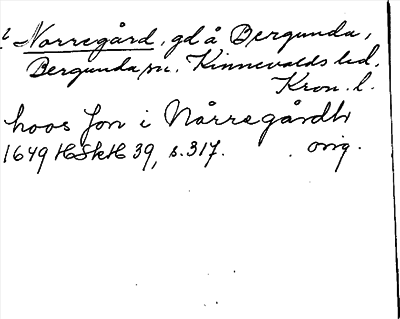 Norregård, gd å Bergunda,
Bergunda sn. Kinnevalds hd.
Kron. l.
hoos Jon i Nårregårdh
1649 HSkH 39, s. 317. orig.